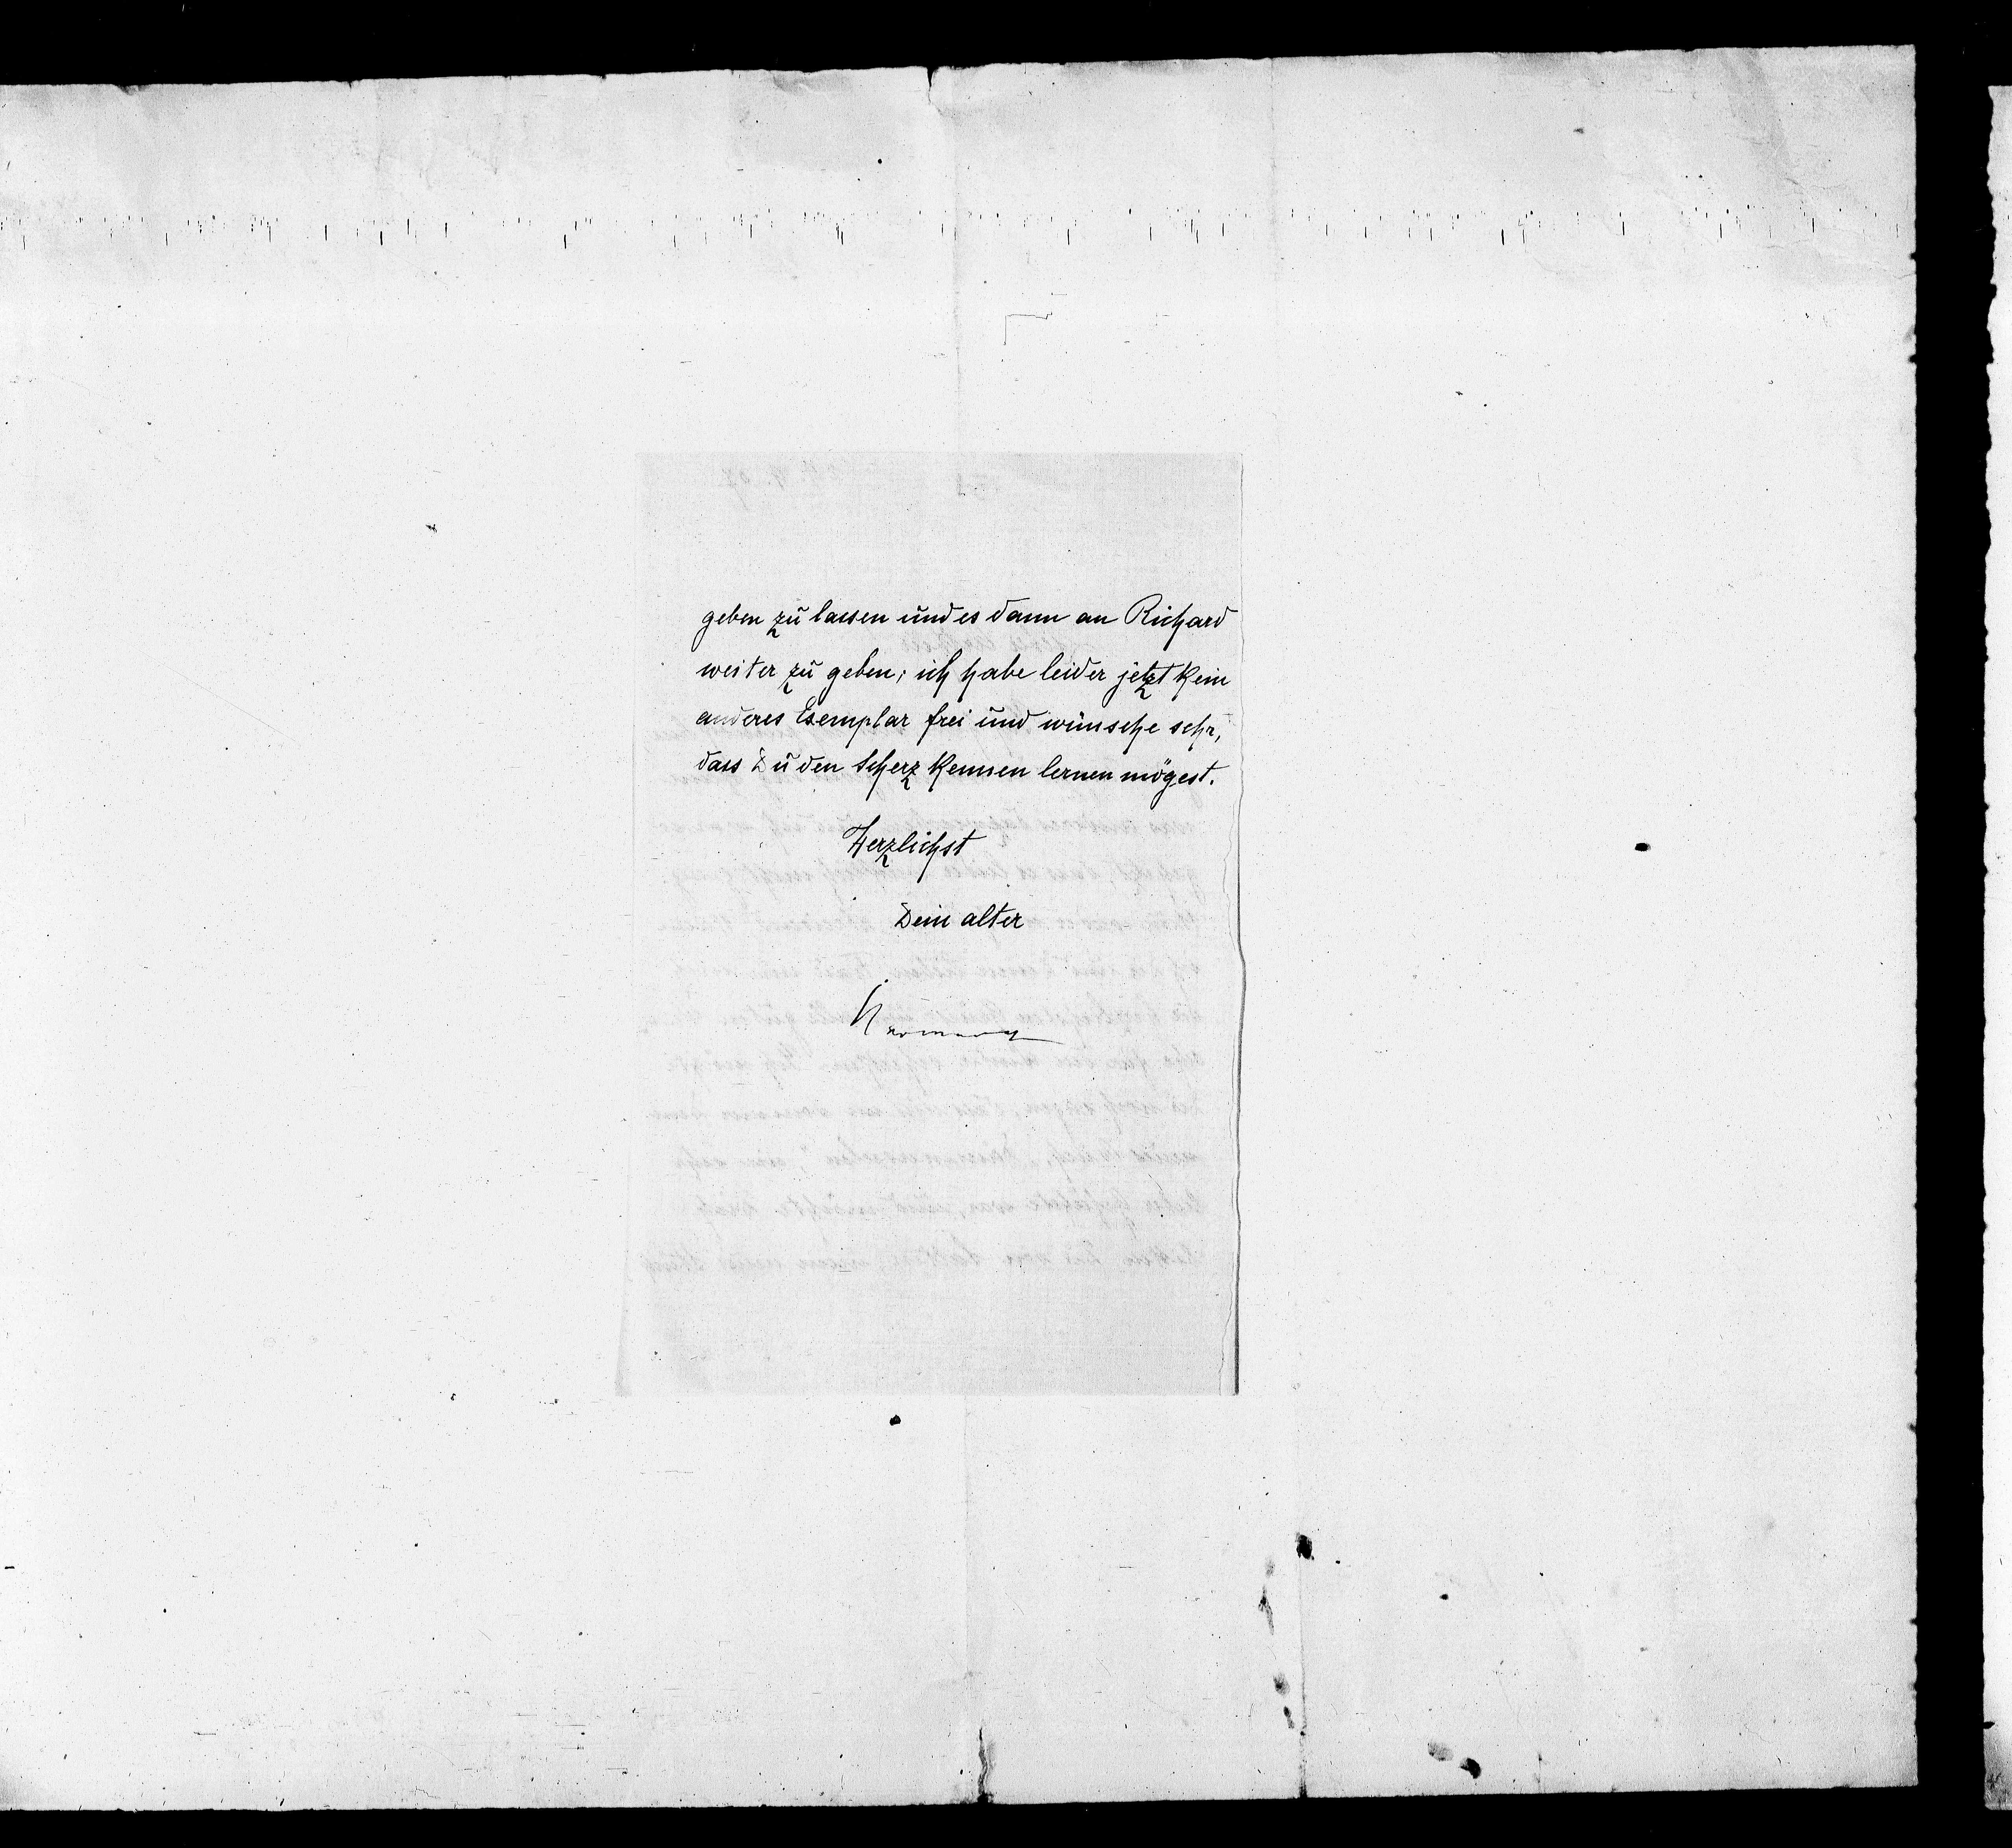 geben zu lassen und es dann an Richard
weiter zu geben; ich habe leider jetzt kein
anderes Exemplar frei und wünsche sehr,
dass Du den Scherz kennen lernen mögest.
Herzlichst
Dein alter